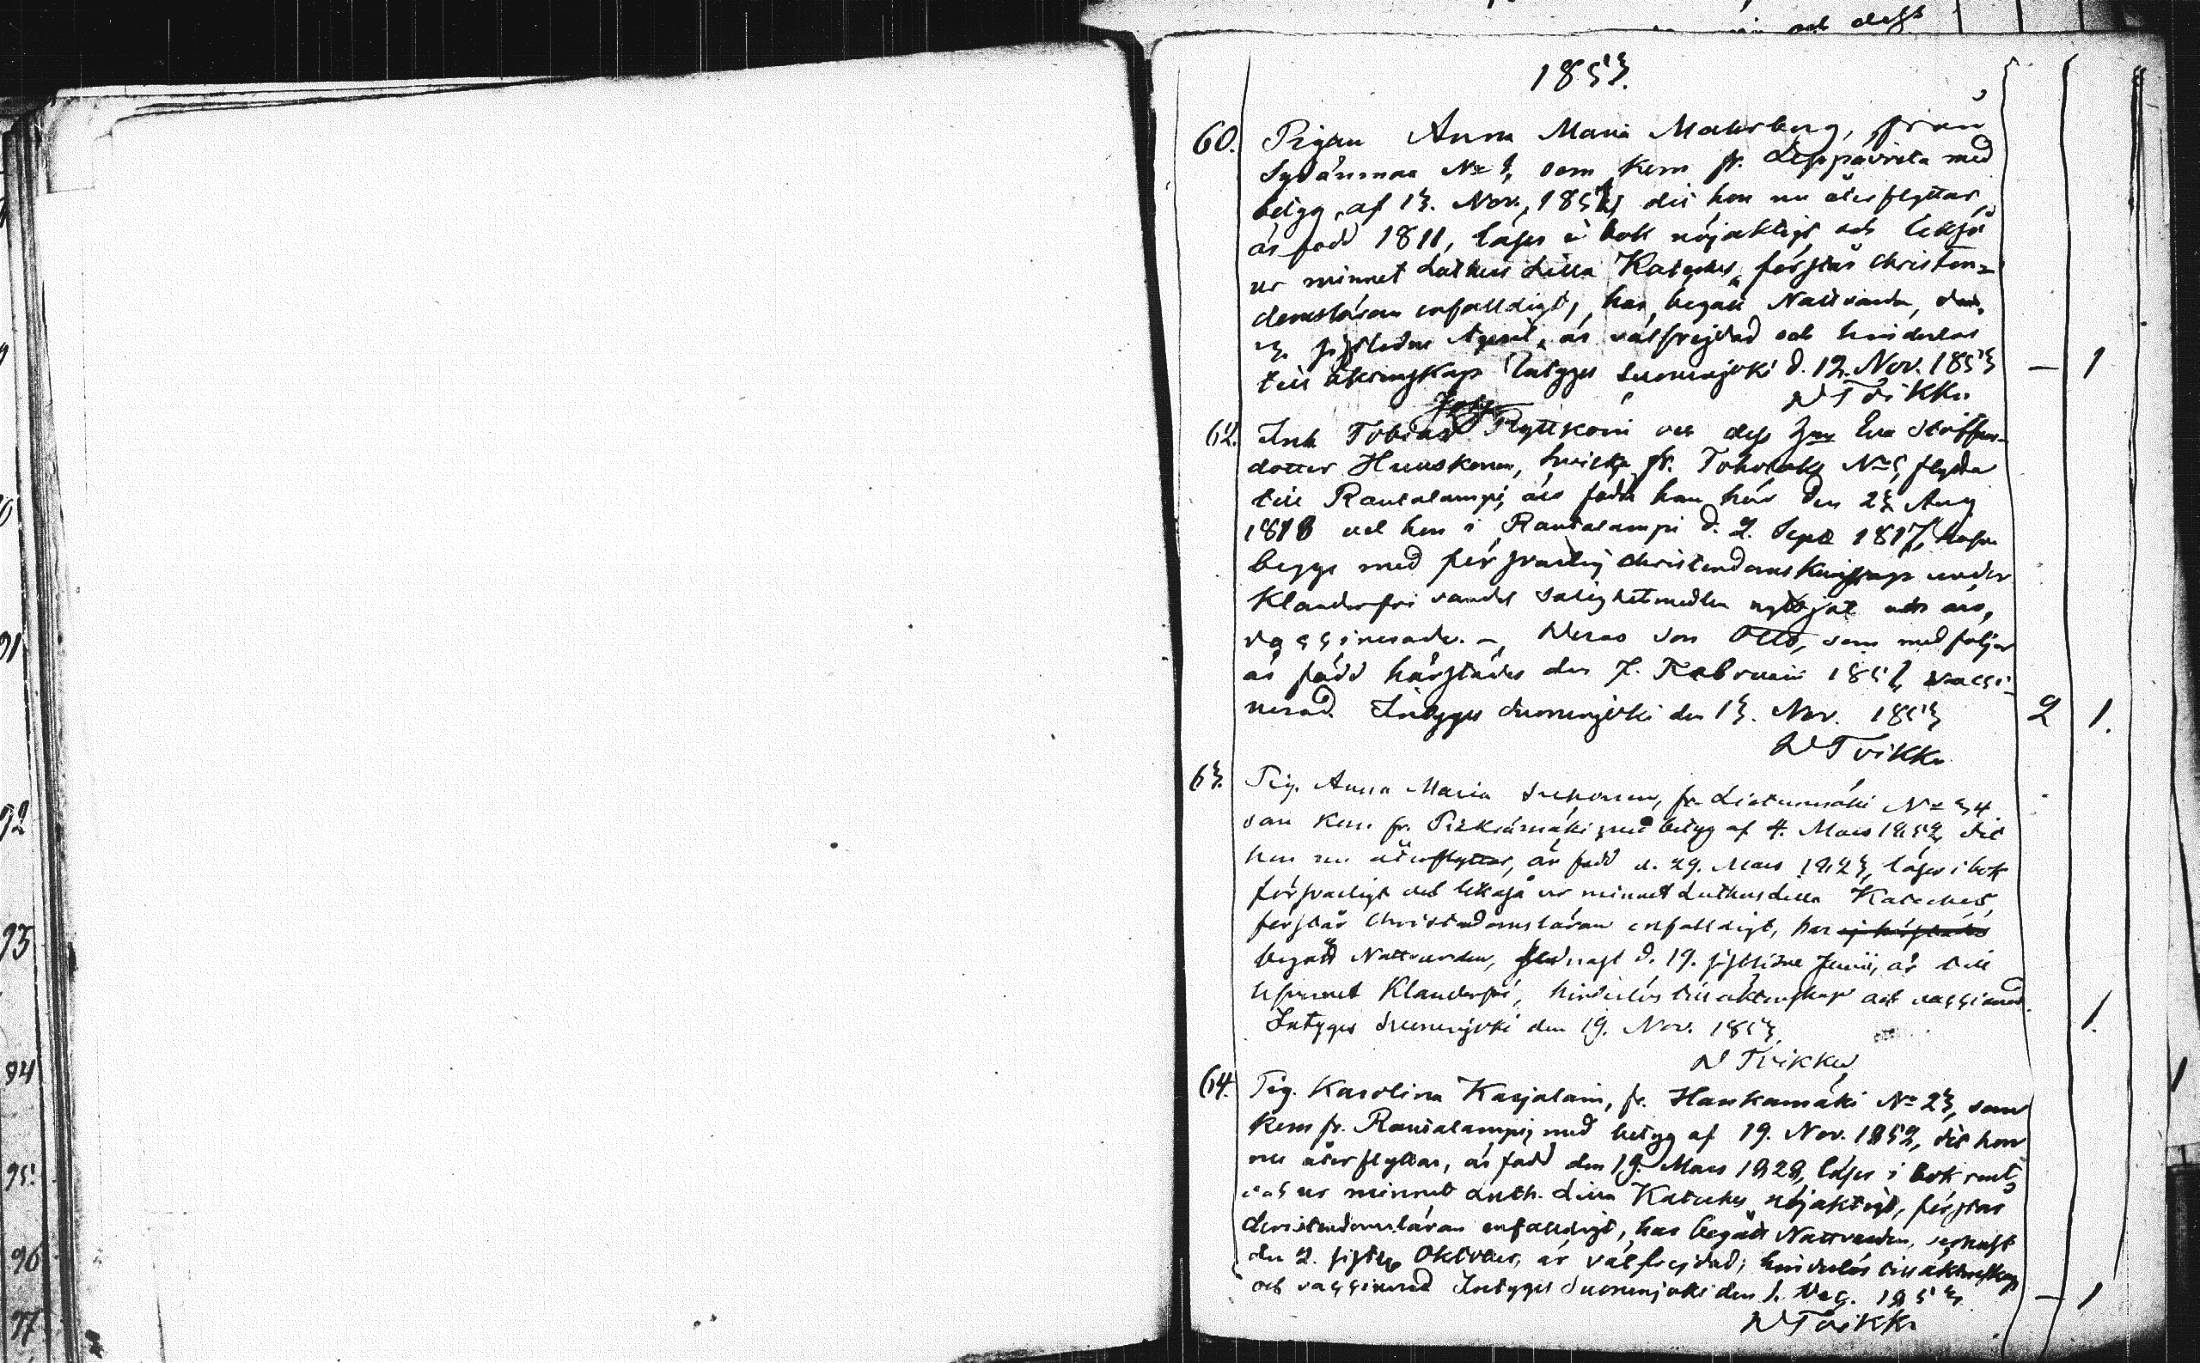 och dess
1853.
60. Pigan Anna Maria Malmberg, från
Sydänmaa No 9, som kom fr. Leppävirta med
betyg af 13. Nov. 1851, dit hon nu återflyttar,
är född 1811, läser i bok nöjaktigt och
ur minnet Luthers Lilla Kateches, förstår christen-
domsläran enfalldigt, har begått Nattvarden,
sistledne April, är välfrejdad och hinderlös
till äktenskap Intygas Suonenjoki d. 12. Nov. 1853 — 1
N Tvikka
62. Inh Tobias Ryttkoin och dess Eva Staffans-
dotter Huuskonen, hvilka fr. No 5, flytta
till Rautalampi, äro födde han här den 23 Aug
1818 och hon i Rautalampi d. 2. Sept 1817, hafva
begge med försvarlig christendoms kunskap under
klanderfri vandel salighetmedlen nyttjat och äro,
vaccinerade. – Deras son Otto, som medföljer
är född härstädes den 7. Februari 1851, vacci-
nerad. Intygas Suonenjoki den 13. Nov. 1853 2 1.
N Tvikka
63. Pig. Anna Maria fr. Lietunmäki No 34
som kom fr. Pielisämäki med betyg af 4. Mars 1852, dit
hon nu återflyttar, är född d. 29. Mars 1823, läser i bok
försvarligt och ur minnet Luthers Lilla Kateches,
förstår Christendomsläran enfalldigt, har ej härstädes
begått Nattvarden, senast d. 19. sistlidne Junii, är till
lefvernet Klanderfri, hinderlös till äktenskap och vaccinerad.
Intygas Suonenjoki den 19. Nov. 1853 1.
N Tvikka
64. Pig. Karolina Karjalain, fr. Hankamäki No 23, som
kom fr. Rautalampi med betyg af 19. Nov. 1852, dit hon
nu återflyttar, är född den 19. Mars 1828, läser i bok rent,
och ur minnet Luth. Lilla Kateches nöjaktigt, förstår
christendomsläran enfalldigt, har begått Nattvarden, senast
den 2. sistl. Oktober, är välfrejdad, hinderlös till äktenskap
och vaccinerad Intygas Suonenjoki den 1. Dec. 1853 — 1
N Tvikka
91
92
93
94
95
96
97